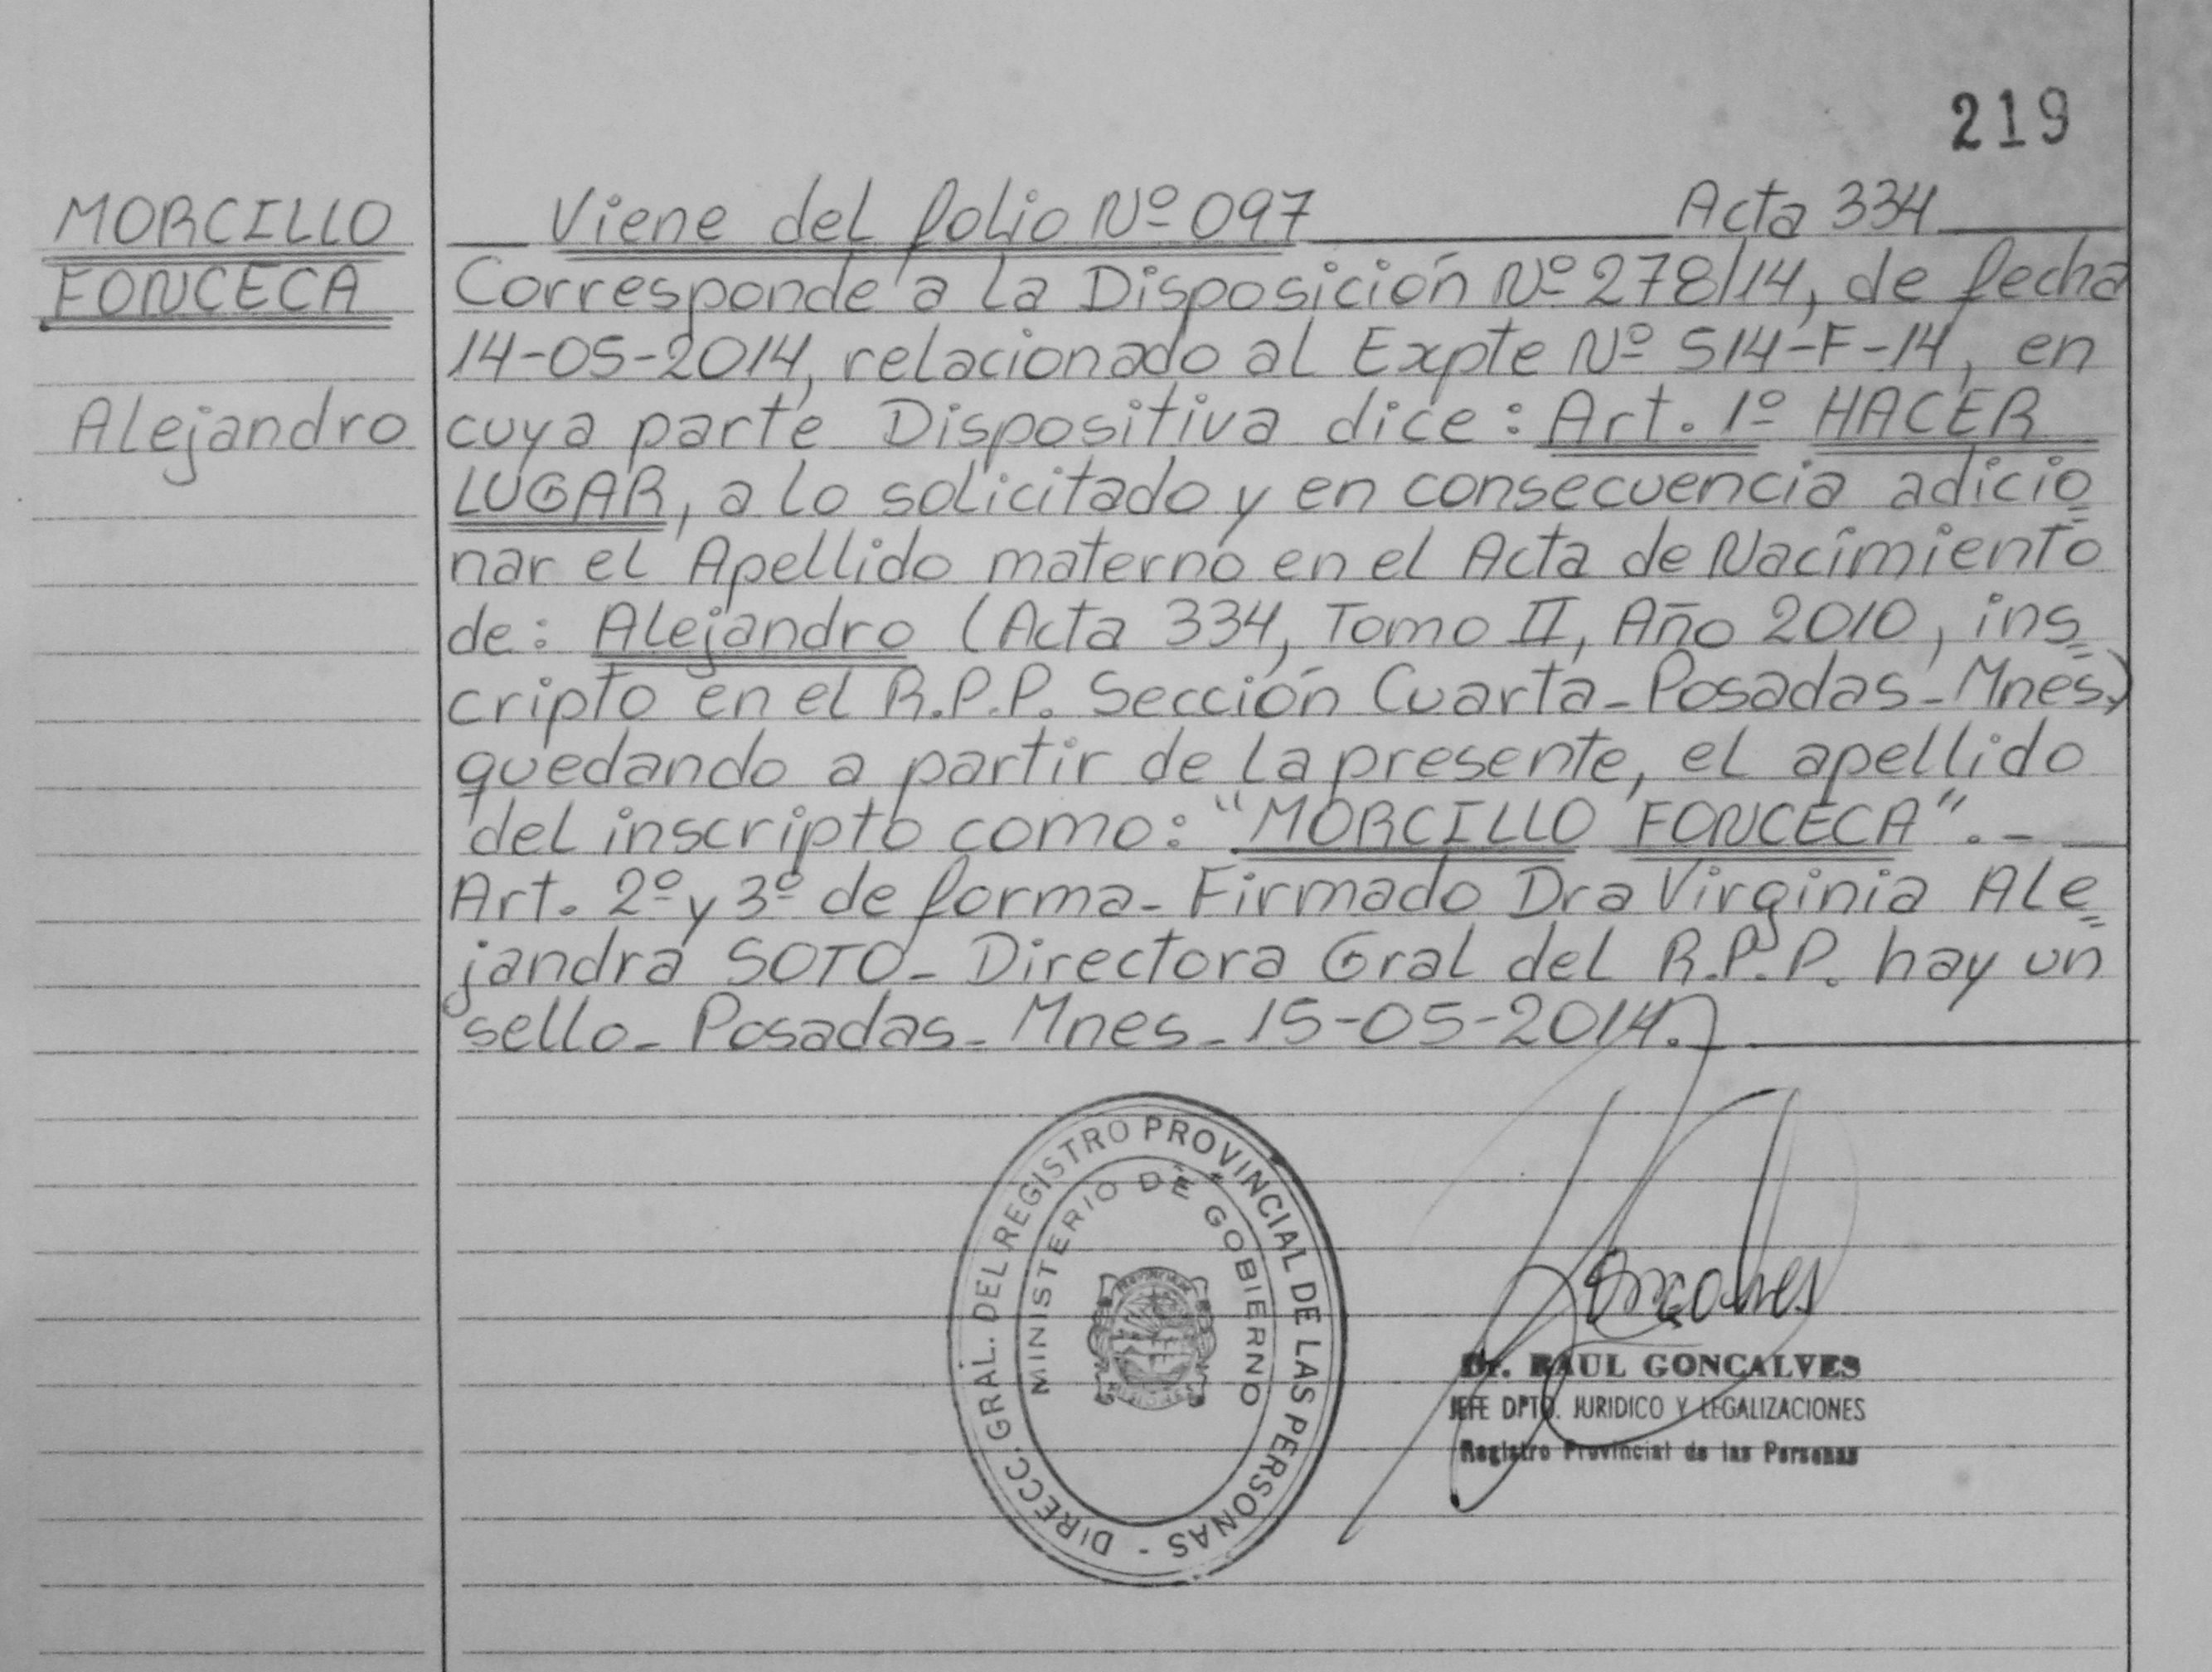 219
MORCILLO
FONCECA
Alejandro
Viene del folio Nº 097 Acta 334
Corresponde a la Disposición Nº 278/14, de fecha
14-05-2014, relacionado al Expte Nº 514-F-14, en
cuya parte Dispositiva dice: Art. 1º HACER
LUGAR, a lo solicitado y en consecuencia adicio
nar el Apellido materno en el Acta de Nacimiento
de: Alejandro (Acta 334, Tomo II, Año 2010, ins
cripto en el R.P.P. Sección Cuarta-Posadas-Mnes)
quedando a partir de la presente, el apellido
del inscripto como: "MORCILLO FONCECA".-
Art. 2º y 3º de forma- Firmado Dra Virginia Ale
jandra SOTO- Directora Gral del R.P.P. hay un
sello- Posadas- Mnes- 15-05-2014.
DIRECC. GRAL. DEL REGISTRO PROVINCIAL DE LAS PERSONAS -
MINISTERIO DE GOBIERNO
Goncalves
Dr. RAUL GONCALVES
JEFE DPTO. JURIDICO Y LEGALIZACIONES
Registro Provincial de las Personas